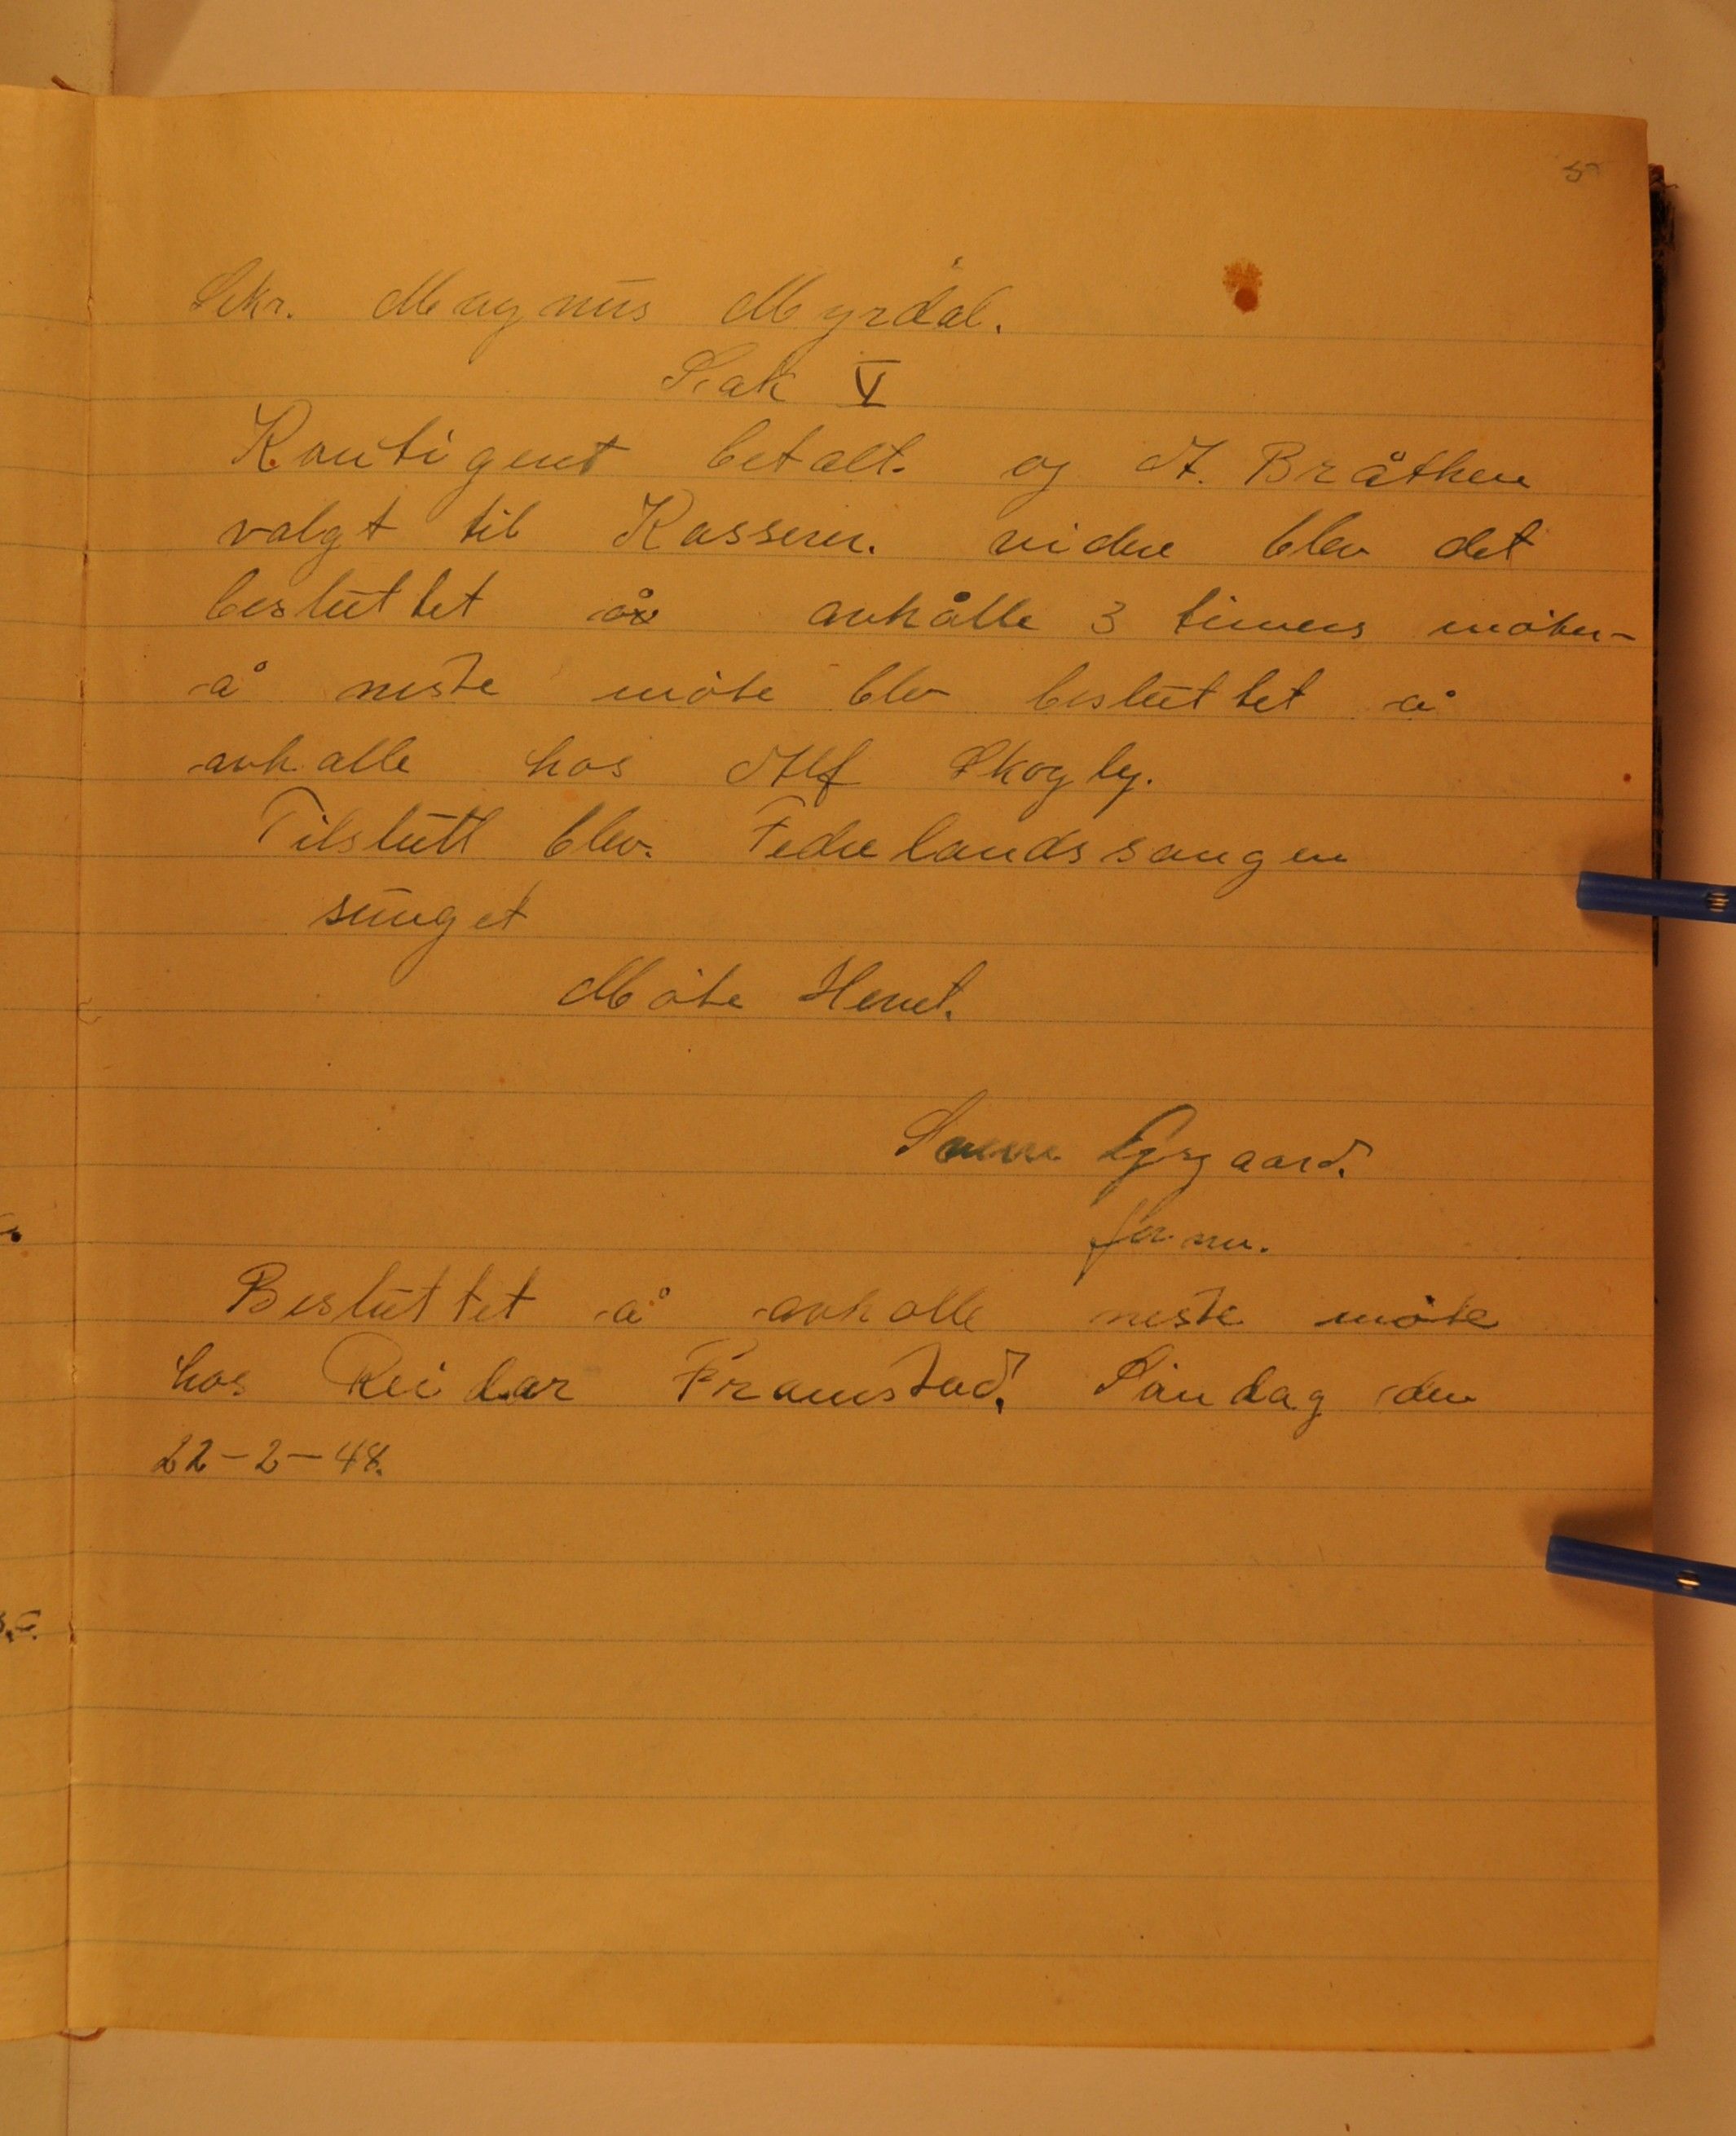 5
Sekr. Magnus Myrdal.
Sak V
Kontigent betalt. og A. Bråthen
valgt til Kasserer. videre blev det
besluttet å avhålle 3 timers möter-
å neste möte blev besluttet å
avhalle hos Alf Skogly.
Tilslutt blev. Federlandssangen
sunget
Möte Hevet.
Sverre
form.
Besluttet å avholle neste möte
hos Reidar Framstad. Söndag den
22-2-48.